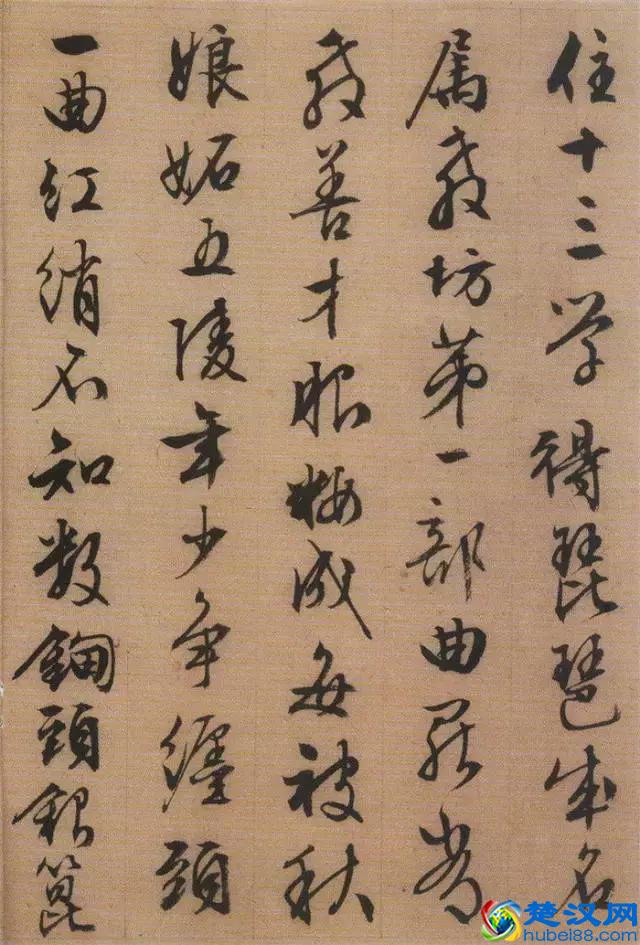 住十三学得琵琶成名
属教坊第一部曲罷
教善才服粧成每被秋
娘妬五陵年少争纏頭
一曲红绡不知数鈿頭銀篦
楚汉网
hubei88.com